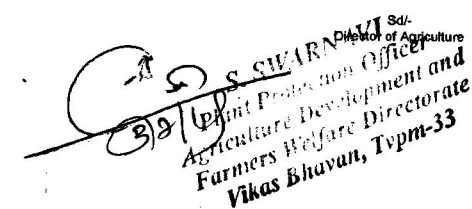 Sd/-
Director of Agriculture
S. SWARN
Plant Protection Officer
Agriculture Development and
Farmers Welfare Directorate
Vikas Bhavan, Tvpm-33